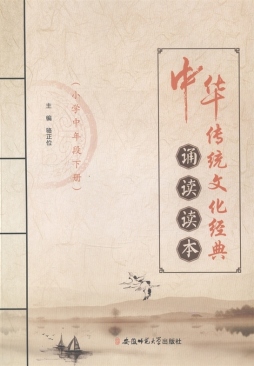 中华传统文化经典
诵读读本
（小学中年段下册）
主编 骆正位
安徽师范大学出版社